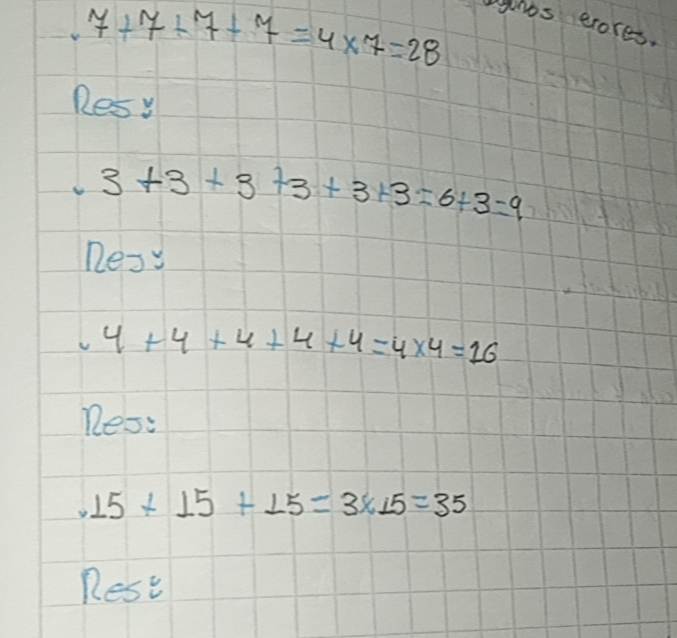 erores.
. 7 + 7 + 7 + 7 = 4 x 7 = 28
Res:
. 3 + 3 + 3 + 3 + 3 + 3 = 6 + 3 = 9
Res:
. 4 + 4 + 4 + 4 + 4 = 4 x 4 = 16
Res:
. 15 + 15 + 15 = 3 x 15 = 35
Res: